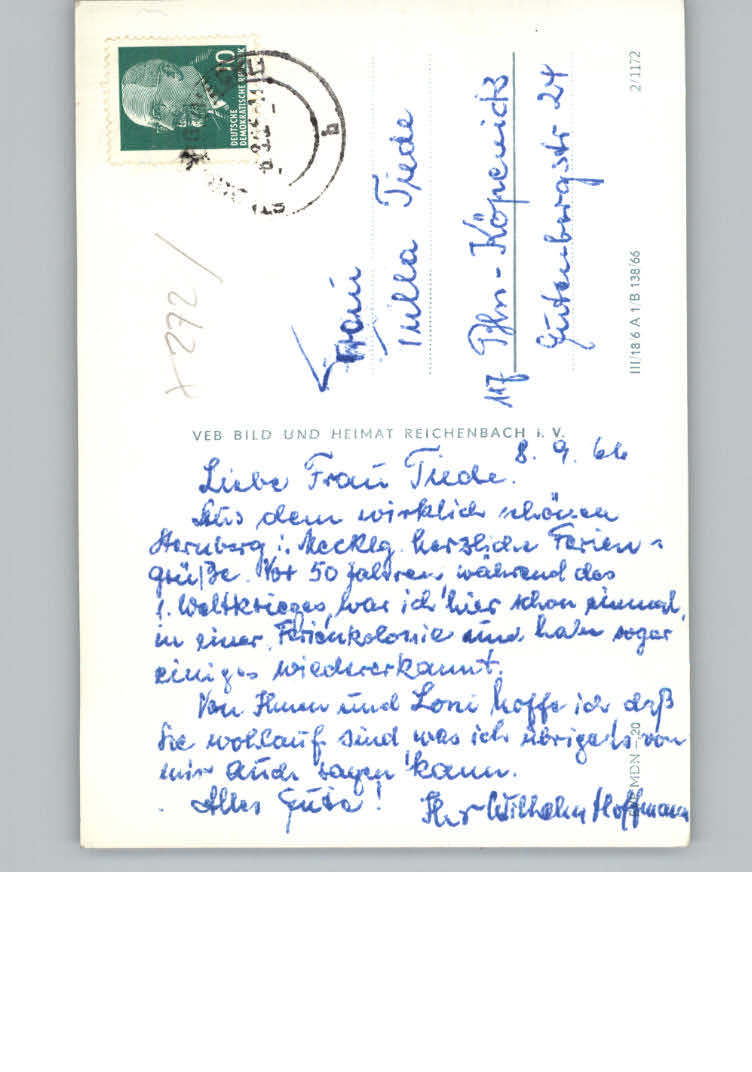 10
DEUTSCHE
DEMOKRATISCHE REPUBLIK
Frau
Tulla Tiede
117 Bln-Köpenick
Gutenbergstr 24
2/1172
III/18 6 A 1/B 138/66
+ 272/
VEB BILD UND HEIMAT REICHENBACH i. V.
8. 9. 66
Liebe Frau Tiede.
Aus dem wirklich schönen
Sternberg i. Mecklg. herzliche Ferien-
grüße. Vor 50 Jahren, während des
1. Weltkrieges, war ich hier schon einmal,
in einer Ferienkolonie und habe sogar
einiges wiedererkannt.
Von Ihnen und Loni hoffe ich daß
Sie wohlauf sind was ich übrigens von
mir auch sagen kann.
Alles Gute! Ihr Wilhelm Hoffmann
MDN -,20